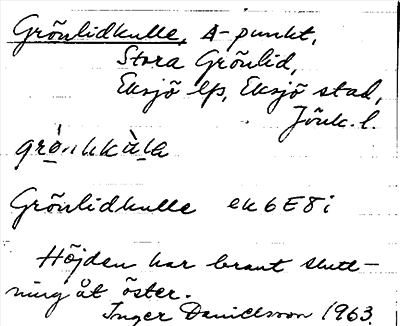 Grönlidkulle, A-punkt,
Stora Grönlid,
Eksjö lfs, Eksjö stad,
Jönk. l.
Grönlidkulle ek 6E8i
Höjden har brant slutt-
ning åt öster.
Inger Danielsson 1963.